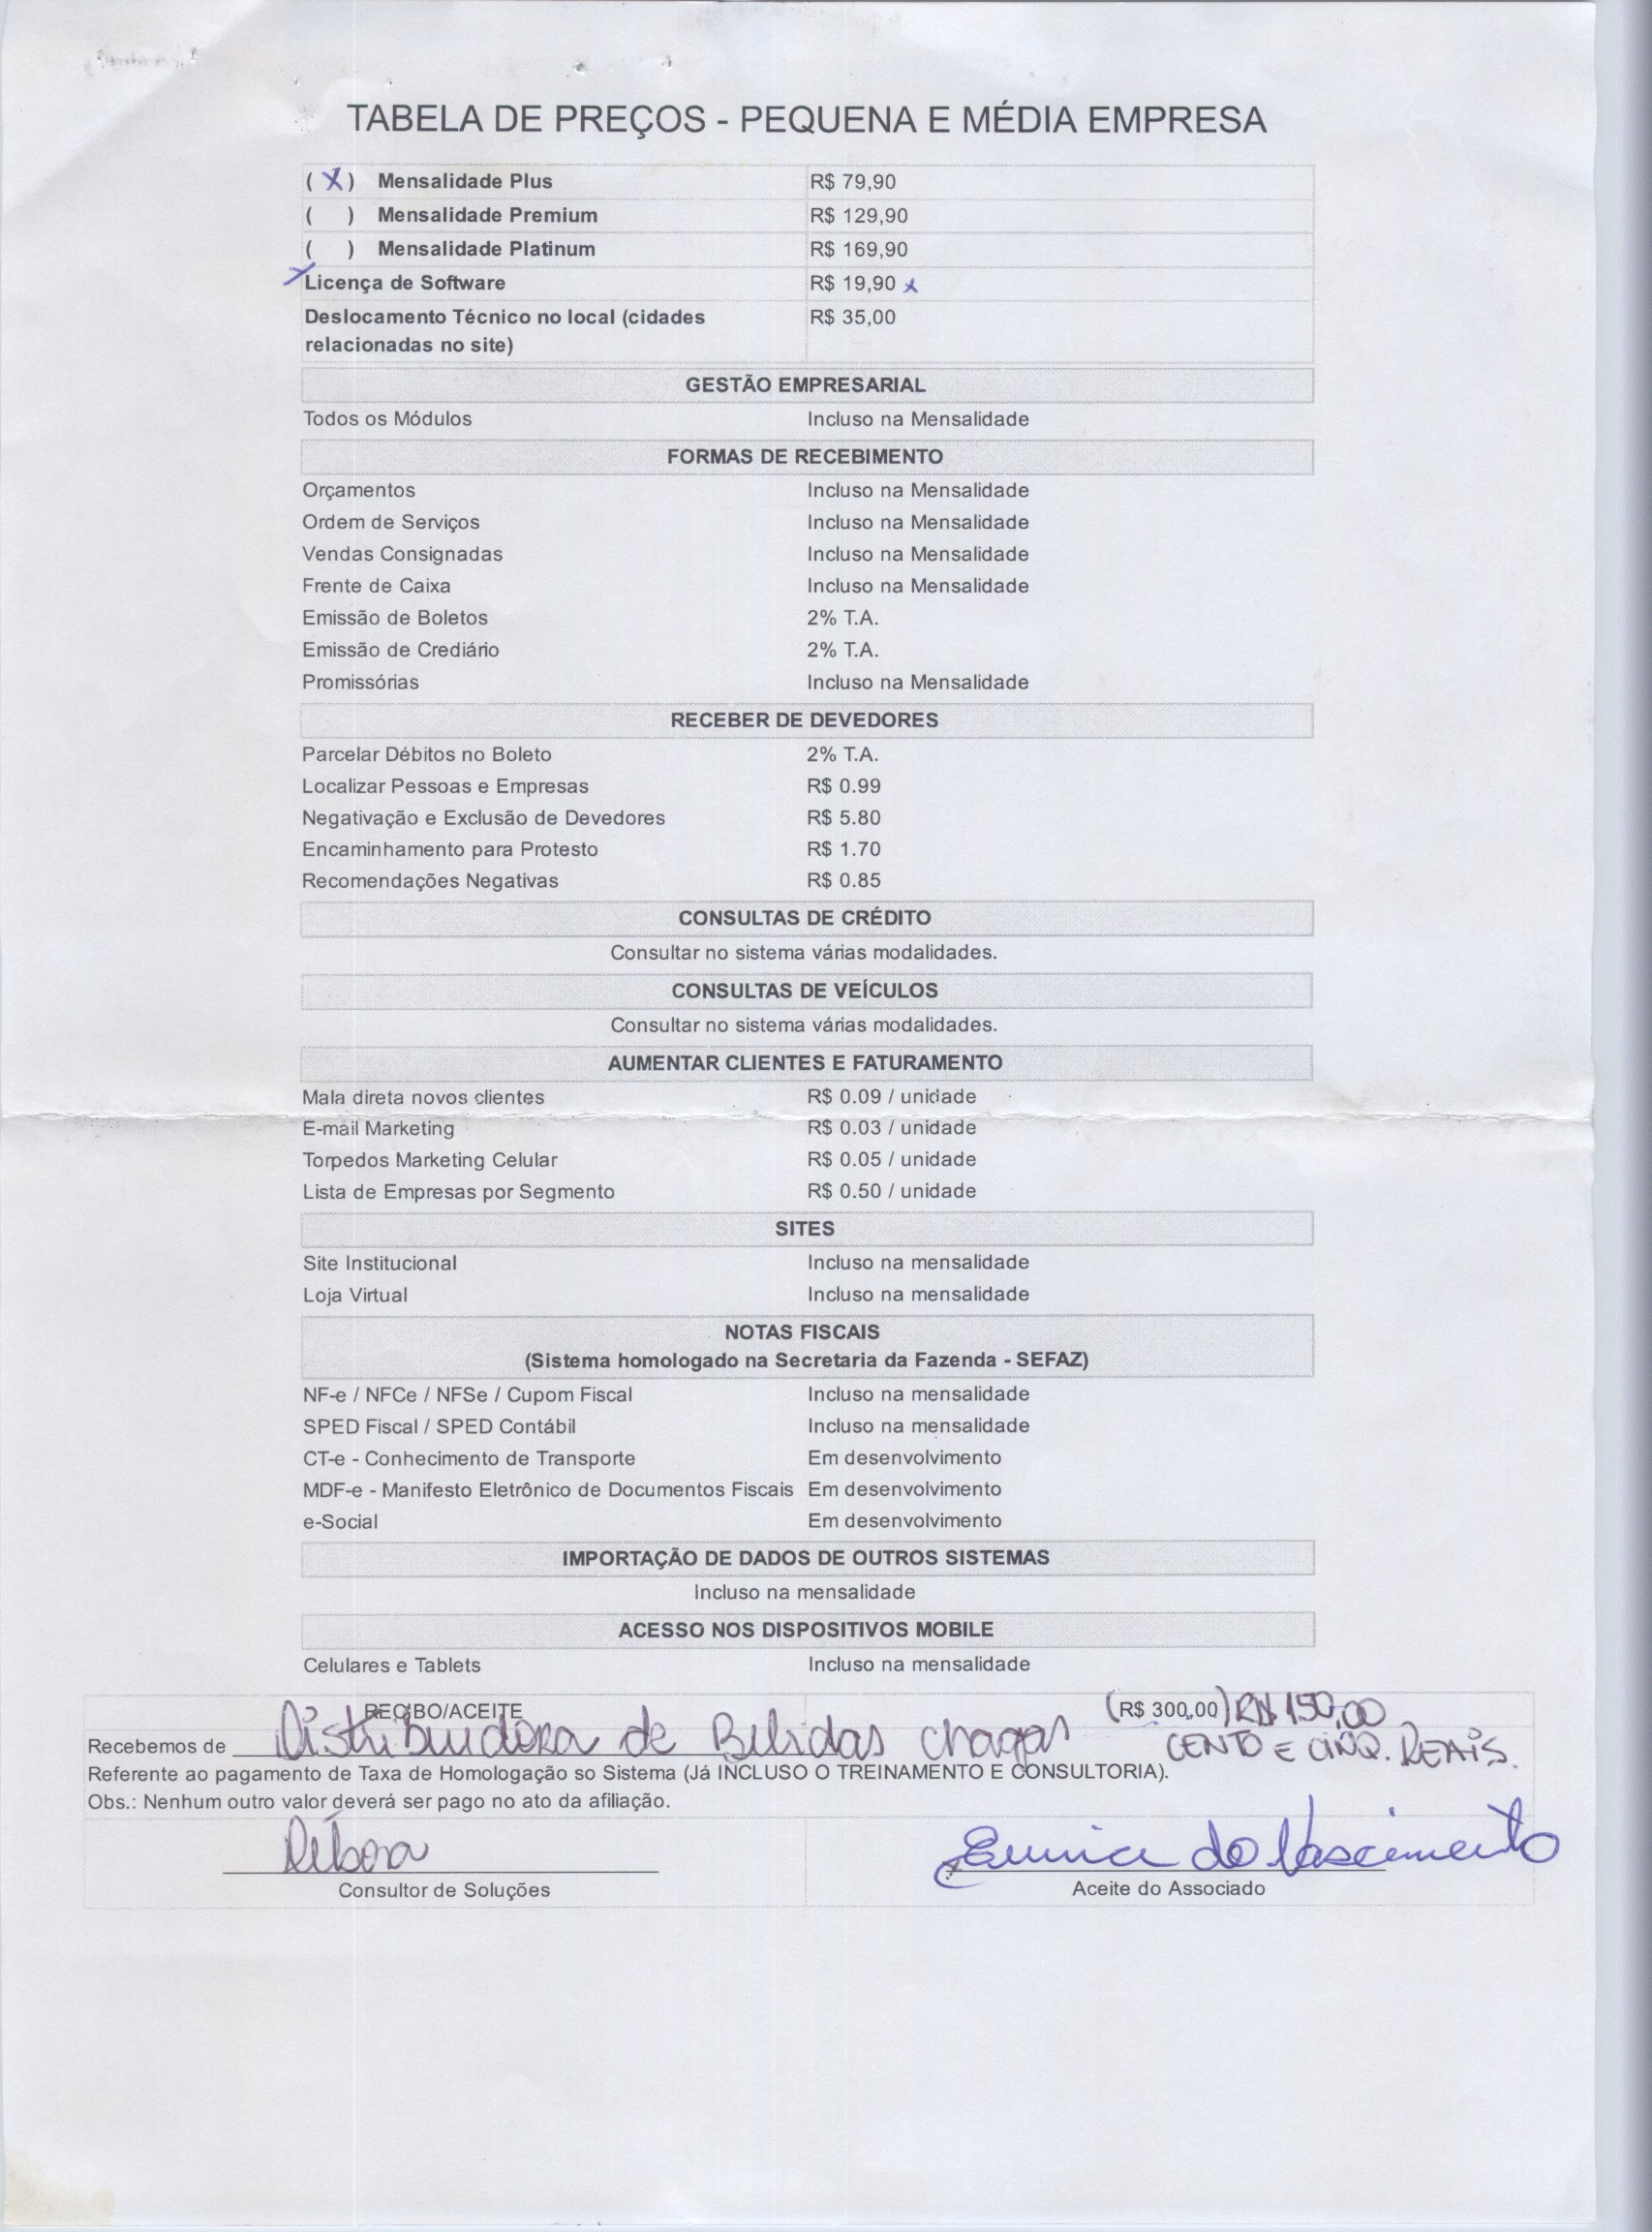 TABELA DE PREÇOS - PEQUENA E MÉDIA EMPRESA
( X ) Mensalidade Plus R$ 79,90
( ) Mensalidade Premium R$ 129,90
( ) Mensalidade Platinum R$ 169,90
x Licença de Software R$ 19,90 x
Deslocamento Técnico no local (cidades R$ 35,00
relacionadas no site)
GESTÃO EMPRESARIAL
Todos os Módulos Incluso na Mensalidade
FORMAS DE RECEBIMENTO
Orçamentos Incluso na Mensalidade
Ordem de Serviços Incluso na Mensalidade
Vendas Consignadas Incluso na Mensalidade
Frente de Caixa Incluso na Mensalidade
Emissão de Boletos 2% T.A.
Emissão de Crediário 2% T.A.
Promissórias Incluso na Mensalidade
RECEBER DE DEVEDORES
Parcelar Débitos no Boleto 2% T.A.
Localizar Pessoas e Empresas R$ 0.99
Negativação e Exclusão de Devedores R$ 5.80
Encaminhamento para Protesto R$ 1.70
Recomendações Negativas R$ 0.85
CONSULTAS DE CRÉDITO
Consultar no sistema várias modalidades.
CONSULTAS DE VEÍCULOS
Consultar no sistema várias modalidades.
AUMENTAR CLIENTES E FATURAMENTO
Mala direta novos clientes R$ 0.09 / unidade
E-mail Marketing R$ 0.03 / unidade
Torpedos Marketing Celular R$ 0.05 / unidade
Lista de Empresas por Segmento R$ 0.50 / unidade
SITES
Site Institucional Incluso na mensalidade
Loja Virtual Incluso na mensalidade
NOTAS FISCAIS
(Sistema homologado na Secretaria da Fazenda - SEFAZ)
NF-e / NFCe / NFSe / Cupom Fiscal Incluso na mensalidade
SPED Fiscal / SPED Contábil Incluso na mensalidade
CT-e - Conhecimento de Transporte Em desenvolvimento
MDF-e - Manifesto Eletrônico de Documentos Fiscais Em desenvolvimento
e-Social Em desenvolvimento
IMPORTAÇÃO DE DADOS DE OUTROS SISTEMAS
Incluso na mensalidade
ACESSO NOS DISPOSITIVOS MOBILE
Celulares e Tablets Incluso na mensalidade
RECIBO/ACEITE (R$ 300,00) R$ 150,00
Recebemos de Distribuidora de Bebidas chagas CENTO E CINQ. REAIS.
Referente ao pagamento de Taxa de Homologação so Sistema (Já INCLUSO O TREINAMENTO E CONSULTORIA).
Obs.: Nenhum outro valor deverá ser pago no ato da afiliação.
Débora Eunice do Nascimento
Consultor de Soluções Aceite do Associado